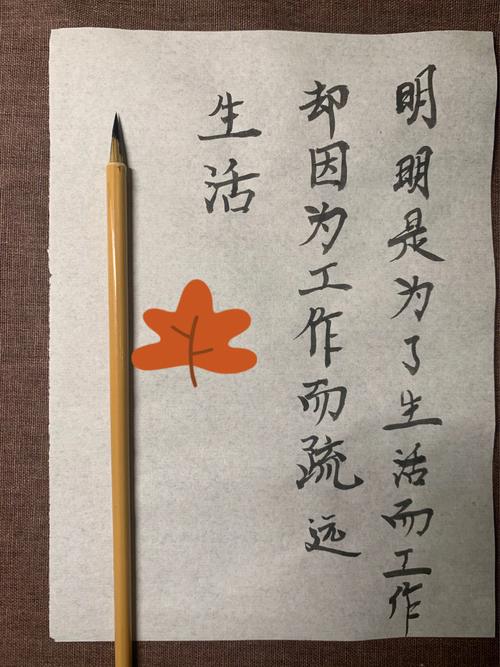 明明是为了生活而工作
却因为工作而疏远
生活